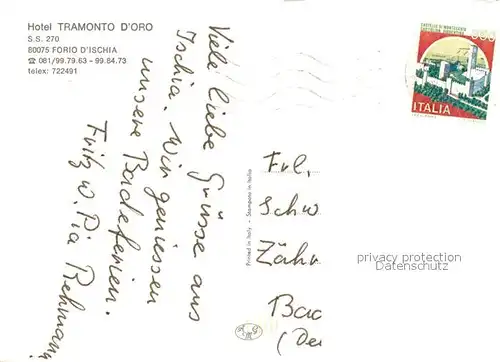 Hotel TRAMONTO D'ORO
S.S. 270
80075 FORIO D'ISCHIA
☎ 081/99.79.63 - 99.84.73
telex: 722491
Viele liebe Grüsse aus
Ischia. Wir geniessen
unsere Badeferien.
Fritz u. Pia Rehmann
Printed in Italy - Stampato in Italia
ITALIA
Frl.
Schw
Zähr
Bad
(De
privacy protection
Datenschutz